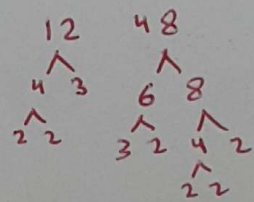 12 48
4 3 6 8
2 2 3 2 4 2
2 2